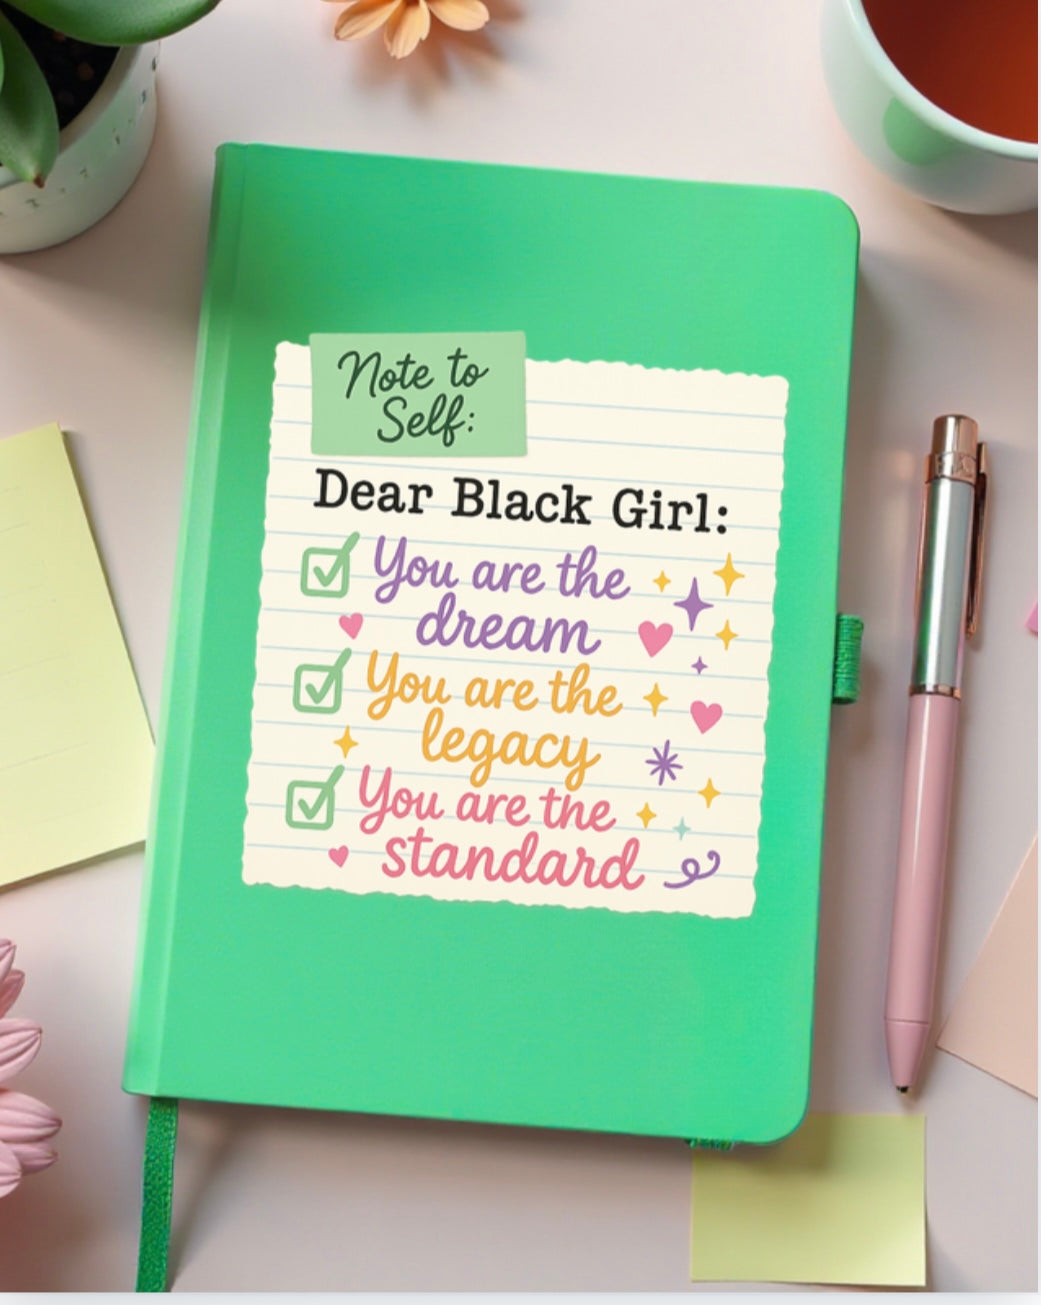 Note to
Self:
Dear Black Girl:
You are the
dream
You are the
legacy
You are the
standard